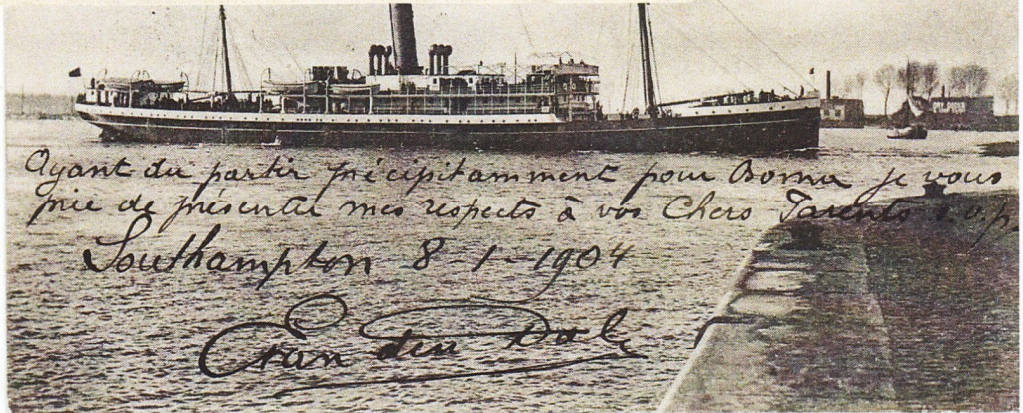 Ayant du partir précipitamment pour Boma je vous
prie de présenter mes respects à vos Chers Parents s.v.p.
Southampton 8-1-1904
Van den Dale